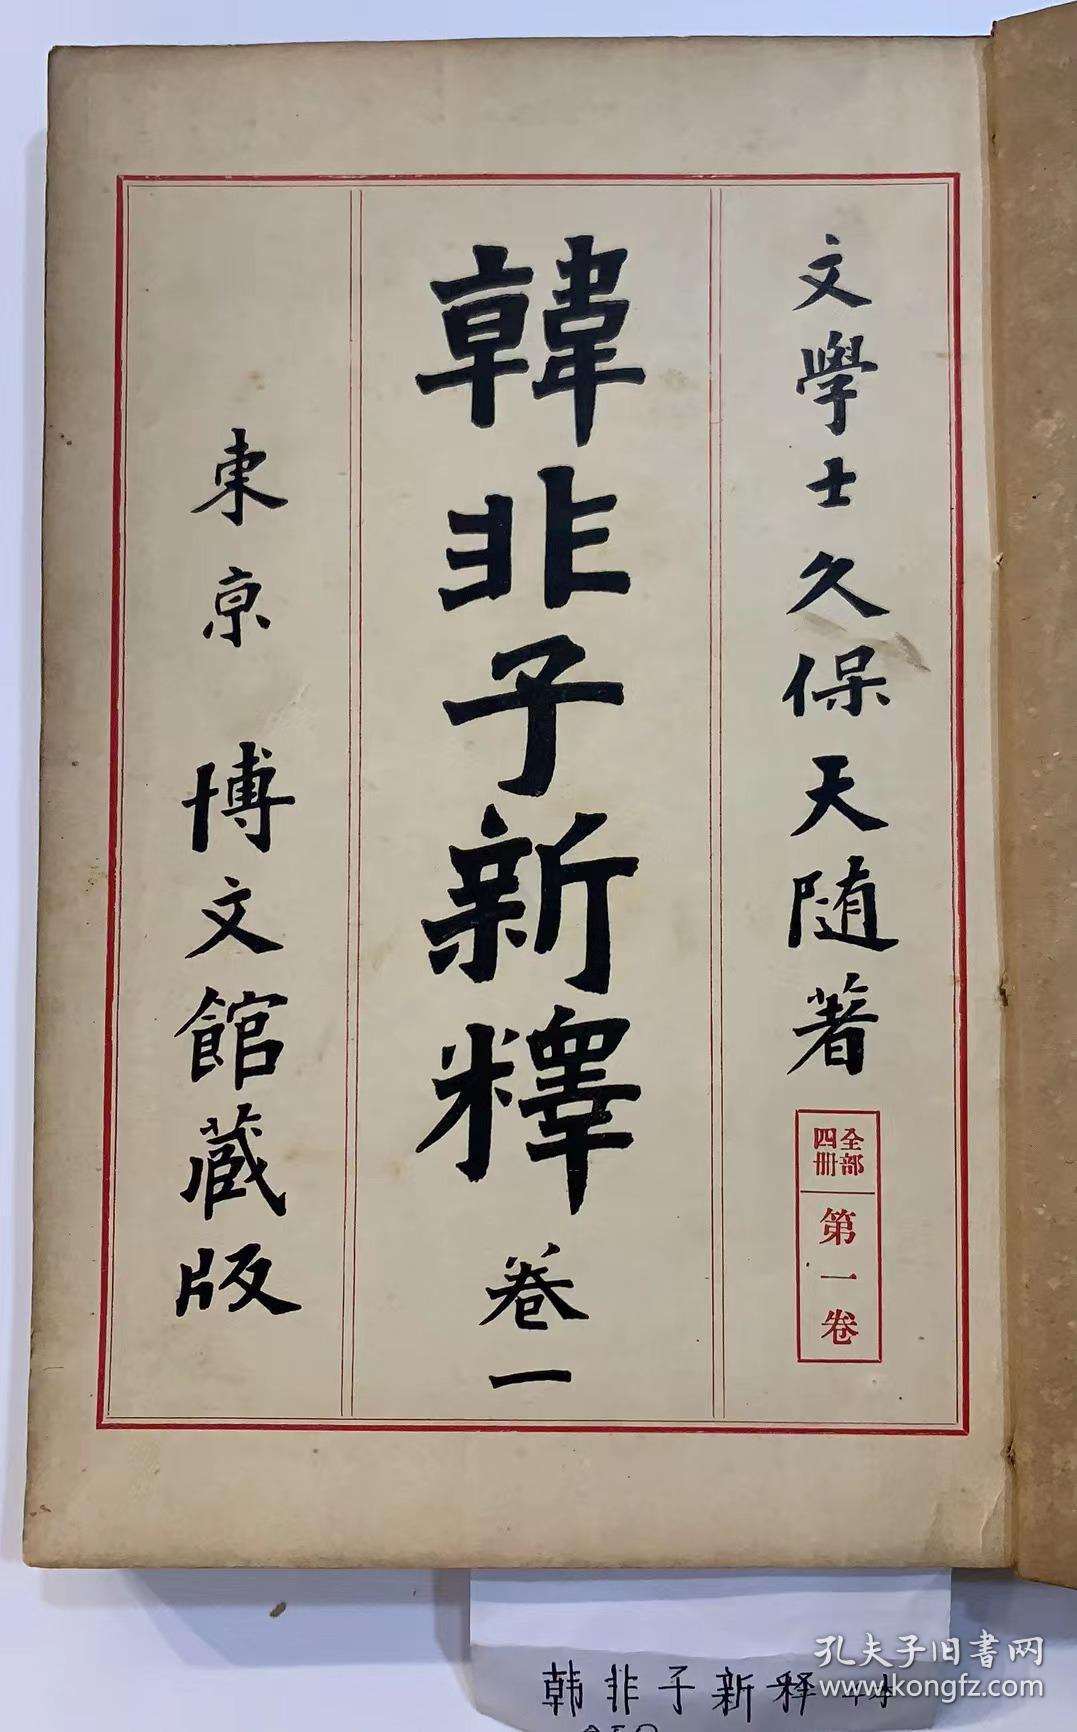 文學士久保天随著
全部
四冊
第一卷
韓非子新釋 卷一
東京 博文館藏版
韩非子新释
孔夫子旧書网
www.kongfz.com